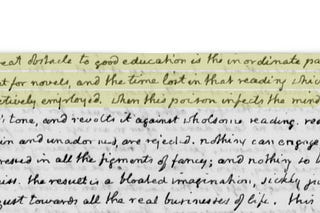 eat obstacle to good education is the inordinate pa
t for novels, and the time lost in that reading whic
ctively employed. when this poison infects the mind
s tone, and revolts it against wholsome reading. rea
in and unadorned, are rejected. nothing can engage
ressed in all the figments of fancy; and nothing so b
iss. the result is a bloated imagination, sickly ju
gust towards all the real businesses of life. this